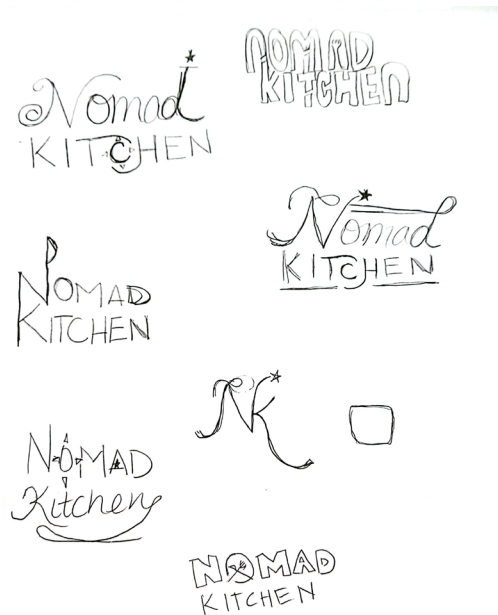 Nomad
KITCHEN
NOMAD
KITCHEN
Nomad
KITCHEN
NOMAD
KITCHEN
NK
NOMAD
Kitchen
NOMAD
KITCHEN